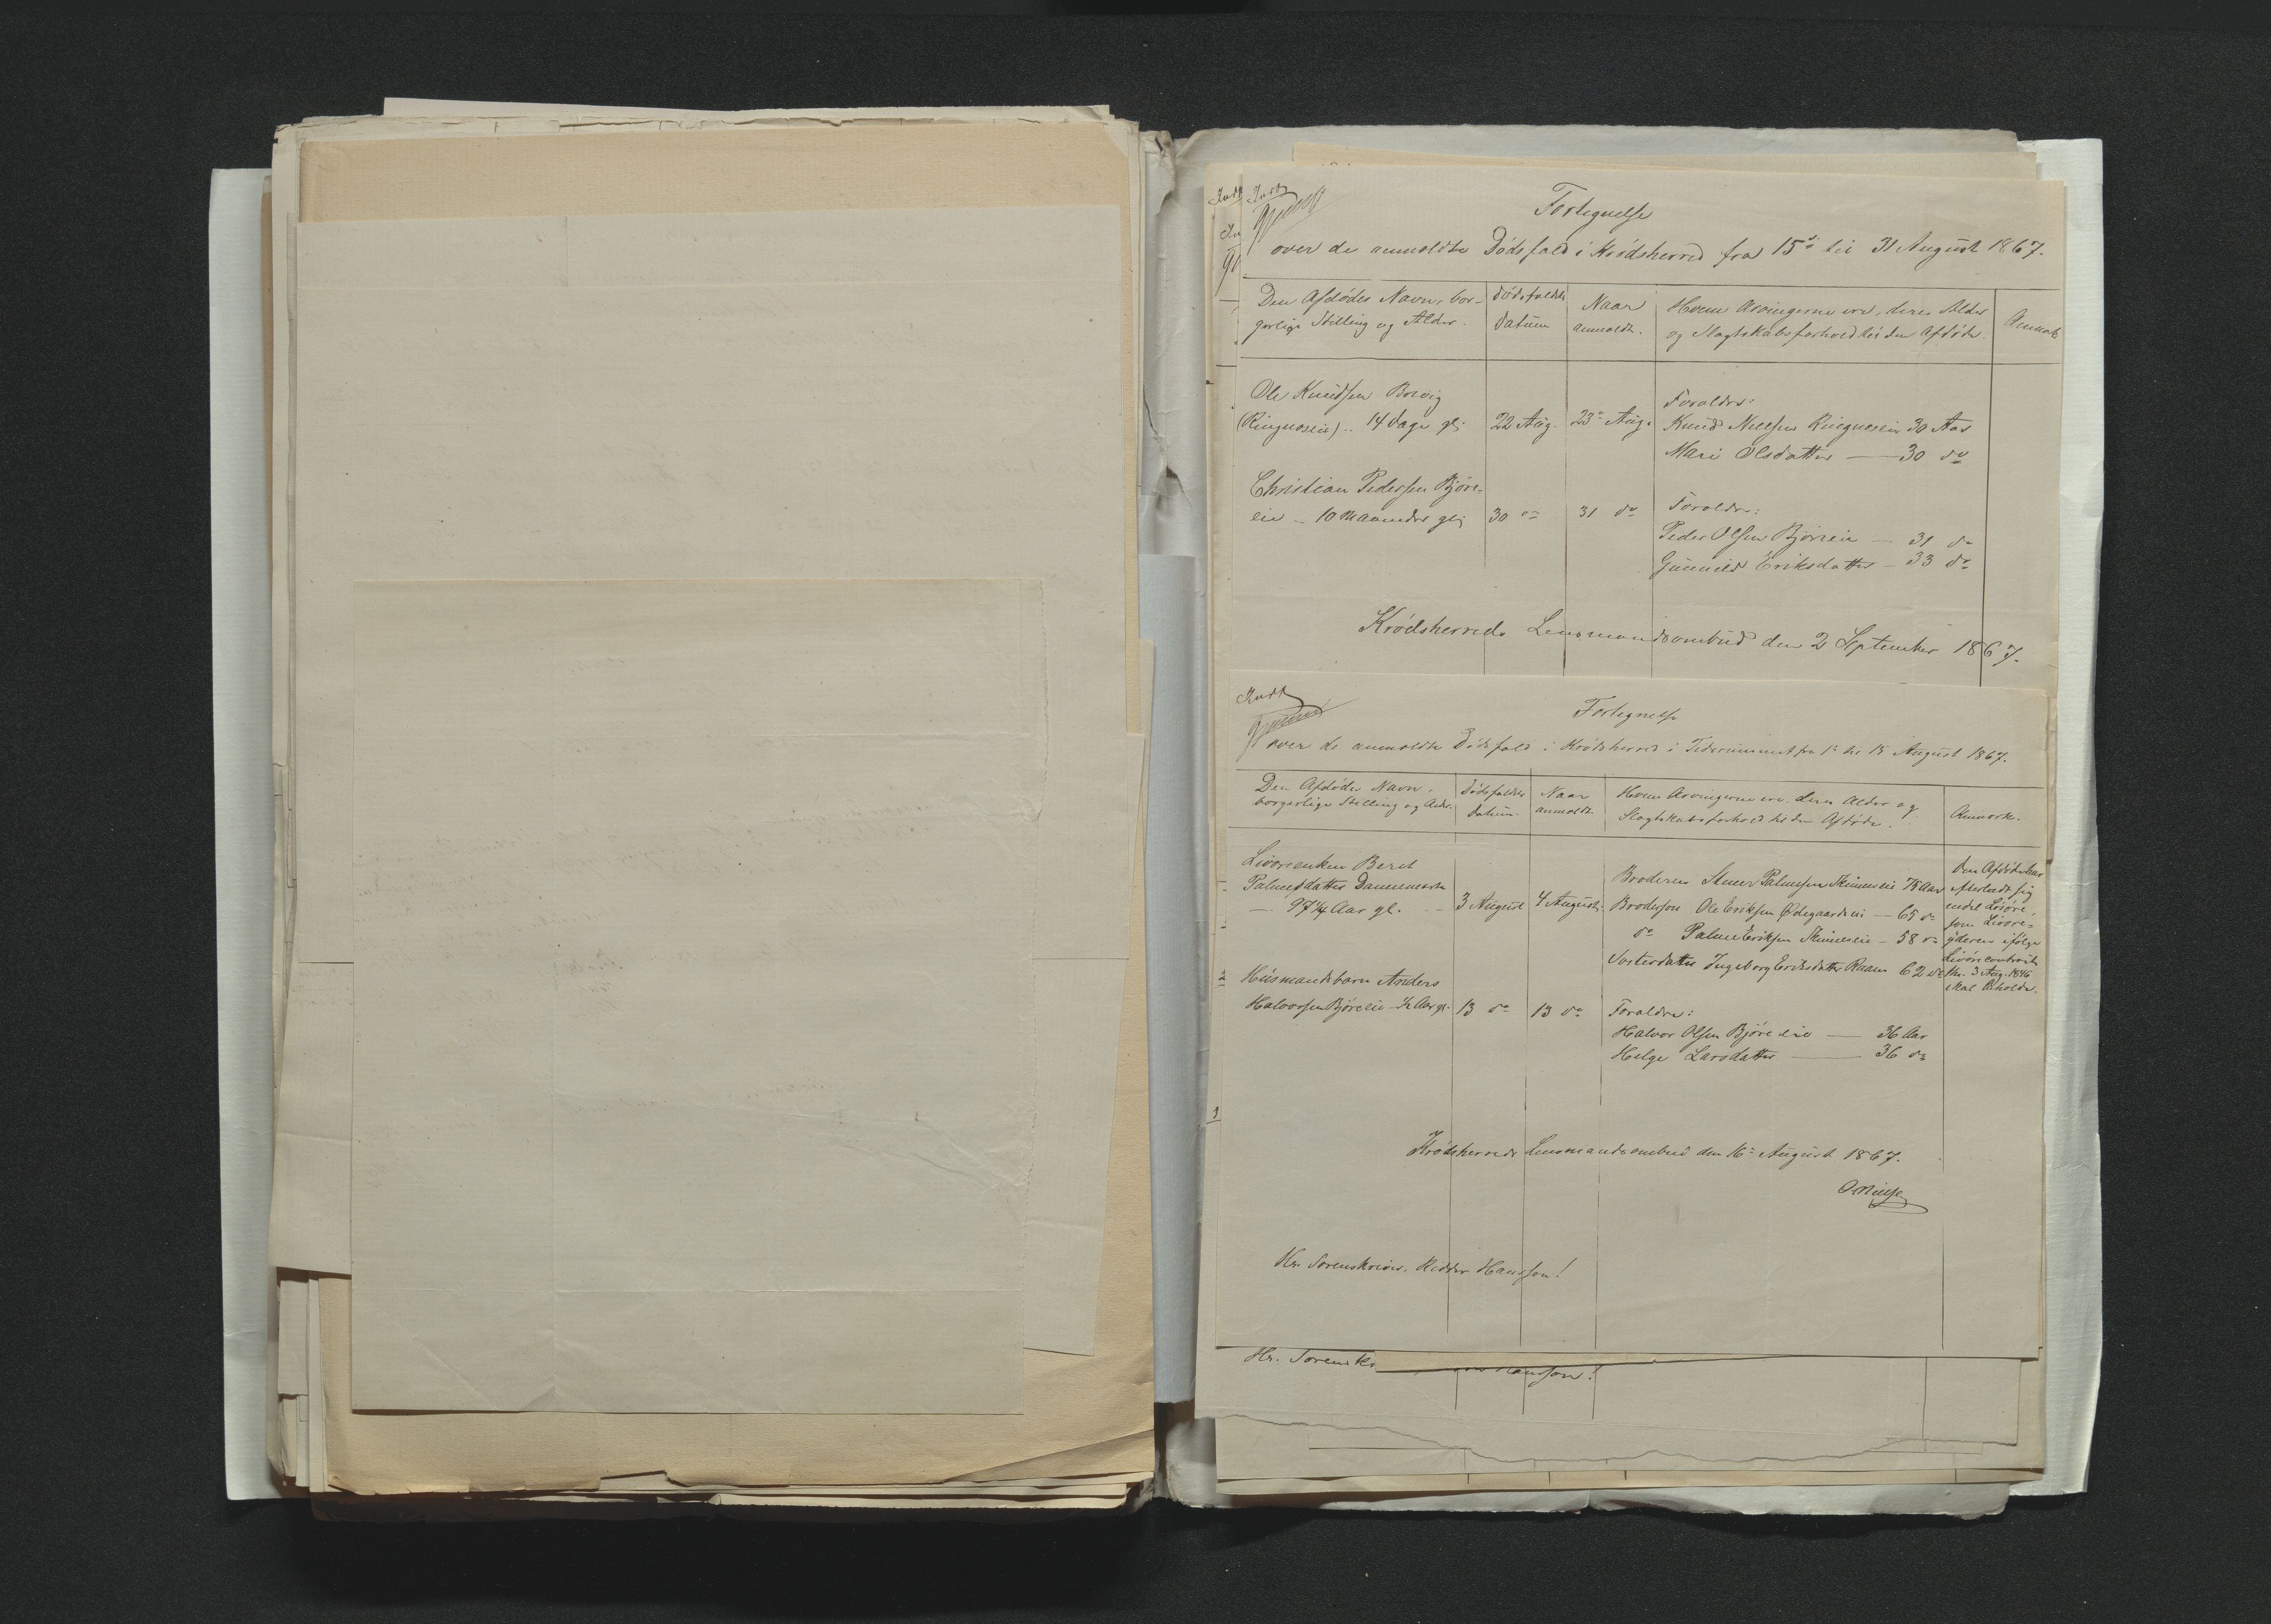 Indt
Fortegnelse
over de anmeldte Dødsfald i Krødsherred fra 15de til 31 August 1867.
Den Afdødes Navn, bor-
gerlige Stilling og Alder.
Dødsfaldets
Datum
Naar
anmeldt.
Hvem Arvingerne ere, deres Alder
og Slægtskabsforhold til den Afdøde.
Anmærk
Ole Knudsen Borvig
(Ringneseie) .. 14 Dage gl.
22 Aug.
23de Aug.
Forældre:
Knud Nielsen Ringneseie 30 Aar
Mari Olsdatter — 30 do
Christian Pedersen Bjøre-
eie .. 10 Maaneder gl.
30 do
31 do
Forældre:
Peder Olsen Bjøreeie — 31 do
Gunnild Eriksdatter — 33 do
Krødsherreds Lensmandsombud den 2 September 1867.
Indt
Fortegnelse
over de anmeldte Dødsfald i Krødsherred i Tidsrummet fra 1ste til 15 August 1867.
Den Afdødes Navn,
borgerlige Stilling og Alder.
Dødsfaldets
Datum.
Naar
anmeldt.
Hvem Arvingerne ere, deres Alder og
Slægtskabsforhold til den Afdøde.
Anmærk.
Livøreenken Beret
Palmesdatter Dannemark
— 97 1/4 Aar gl. —
3 August
4 August.
Broderen Stener Palmesen Skinneseie 75 Aar
Brodersøn Ole Eriksen Ødegaardseie — 65 do
do Palme Eriksen Skinneseie — 58 do
Søsterdatter Ingeborg Eriksdatter Raaen 62 do
Den Afdøde har
efterladt sig
endel Livøre,
som Livøre-
yderen ifølge
Livørecontract
thr. 3 Aug. 1846
skal beholde.
Husmandsbarn Anders
Halvorsen Bjøreeie 1/2 Aar gl.
13 do
13 do
Forældre:
Halvor Olsen Bjøreeie — 36 Aar
Helge Larsdatter — 36 do
Krødsherreds Lensmandsombud den 16de August 1867.
Hr. Sorenskriver, Ridder Hansson!
Hr. Sorensk
Hansson!